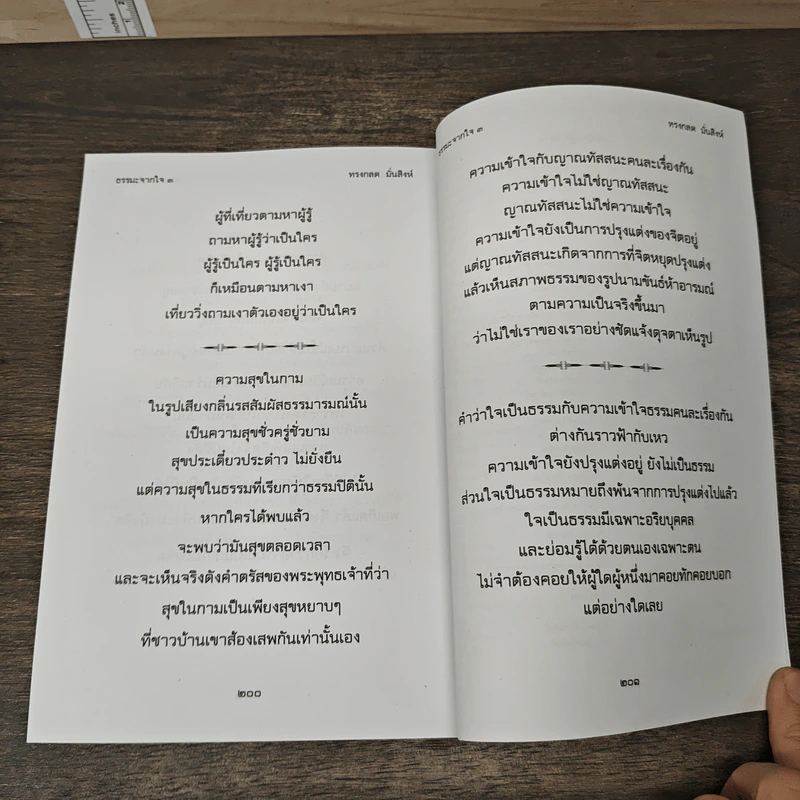 inches
ธรรมะจากใจ ๓
ทรงกลด มั่นสิงห์
ผู้ที่เที่ยวตามหาผู้รู้
ถามหาผู้รู้ว่าเป็นใคร
ผู้รู้เป็นใคร ผู้รู้เป็นใคร
ก็เหมือนตามหาเงา
เที่ยววิ่งถามเงาตัวเองอยู่ว่าเป็นใคร
ความสุขในกาม
ในรูปเสียงกลิ่นรสสัมผัสธรรมารมณ์นั้น
เป็นความสุขชั่วครู่ชั่วยาม
สุขประเดี๋ยวประด๋าว ไม่ยั่งยืน
แต่ความสุขในธรรมที่เรียกว่าธรรมปิตินั้น
หากใครได้พบแล้ว
จะพบว่ามันสุขตลอดเวลา
และจะเห็นจริงดังคำตรัสของพระพุทธเจ้าที่ว่า
สุขในกามเป็นเพียงสุขหยาบๆ
ที่ชาวบ้านเขาส้องเสพกันเท่านั้นเอง
๒๐๐
ธรรมะจากใจ ๓
ทรงกลด มั่นสิงห์
ความเข้าใจกับญาณทัสสนะคนละเรื่องกัน
ความเข้าใจไม่ใช่ญาณทัสสนะ
ญาณทัสสนะไม่ใช่ความเข้าใจ
ความเข้าใจยังเป็นการปรุงแต่งของจิตอยู่
แต่ญาณทัสสนะเกิดจากการที่จิตหยุดปรุงแต่ง
แล้วเห็นสภาพธรรมของรูปนามขันธ์ห้าอารมณ์
ตามความเป็นจริงขึ้นมา
ว่าไม่ใช่เราของเราอย่างชัดแจ้งดุจตาเห็นรูป
คำว่าใจเป็นธรรมกับความเข้าใจธรรมคนละเรื่องกัน
ต่างกันราวฟ้ากับเหว
ความเข้าใจยังปรุงแต่งอยู่ ยังไม่เป็นธรรม
ส่วนใจเป็นธรรมหมายถึงพ้นจากการปรุงแต่งไปแล้ว
ใจเป็นธรรมมีเฉพาะอริยบุคคล
และย่อมรู้ได้ด้วยตนเองเฉพาะตน
ไม่จำต้องคอยให้ผู้ใดผู้หนึ่งมาคอยทักคอยบอก
แต่อย่างใดเลย
๒๐๑